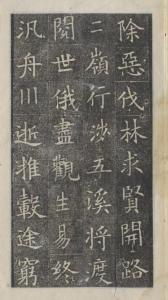 除惡伐林求賢開路
二嶺行涉五溪将渡
閱世俄盡觀生易終
汎舟川逝推轂途窮